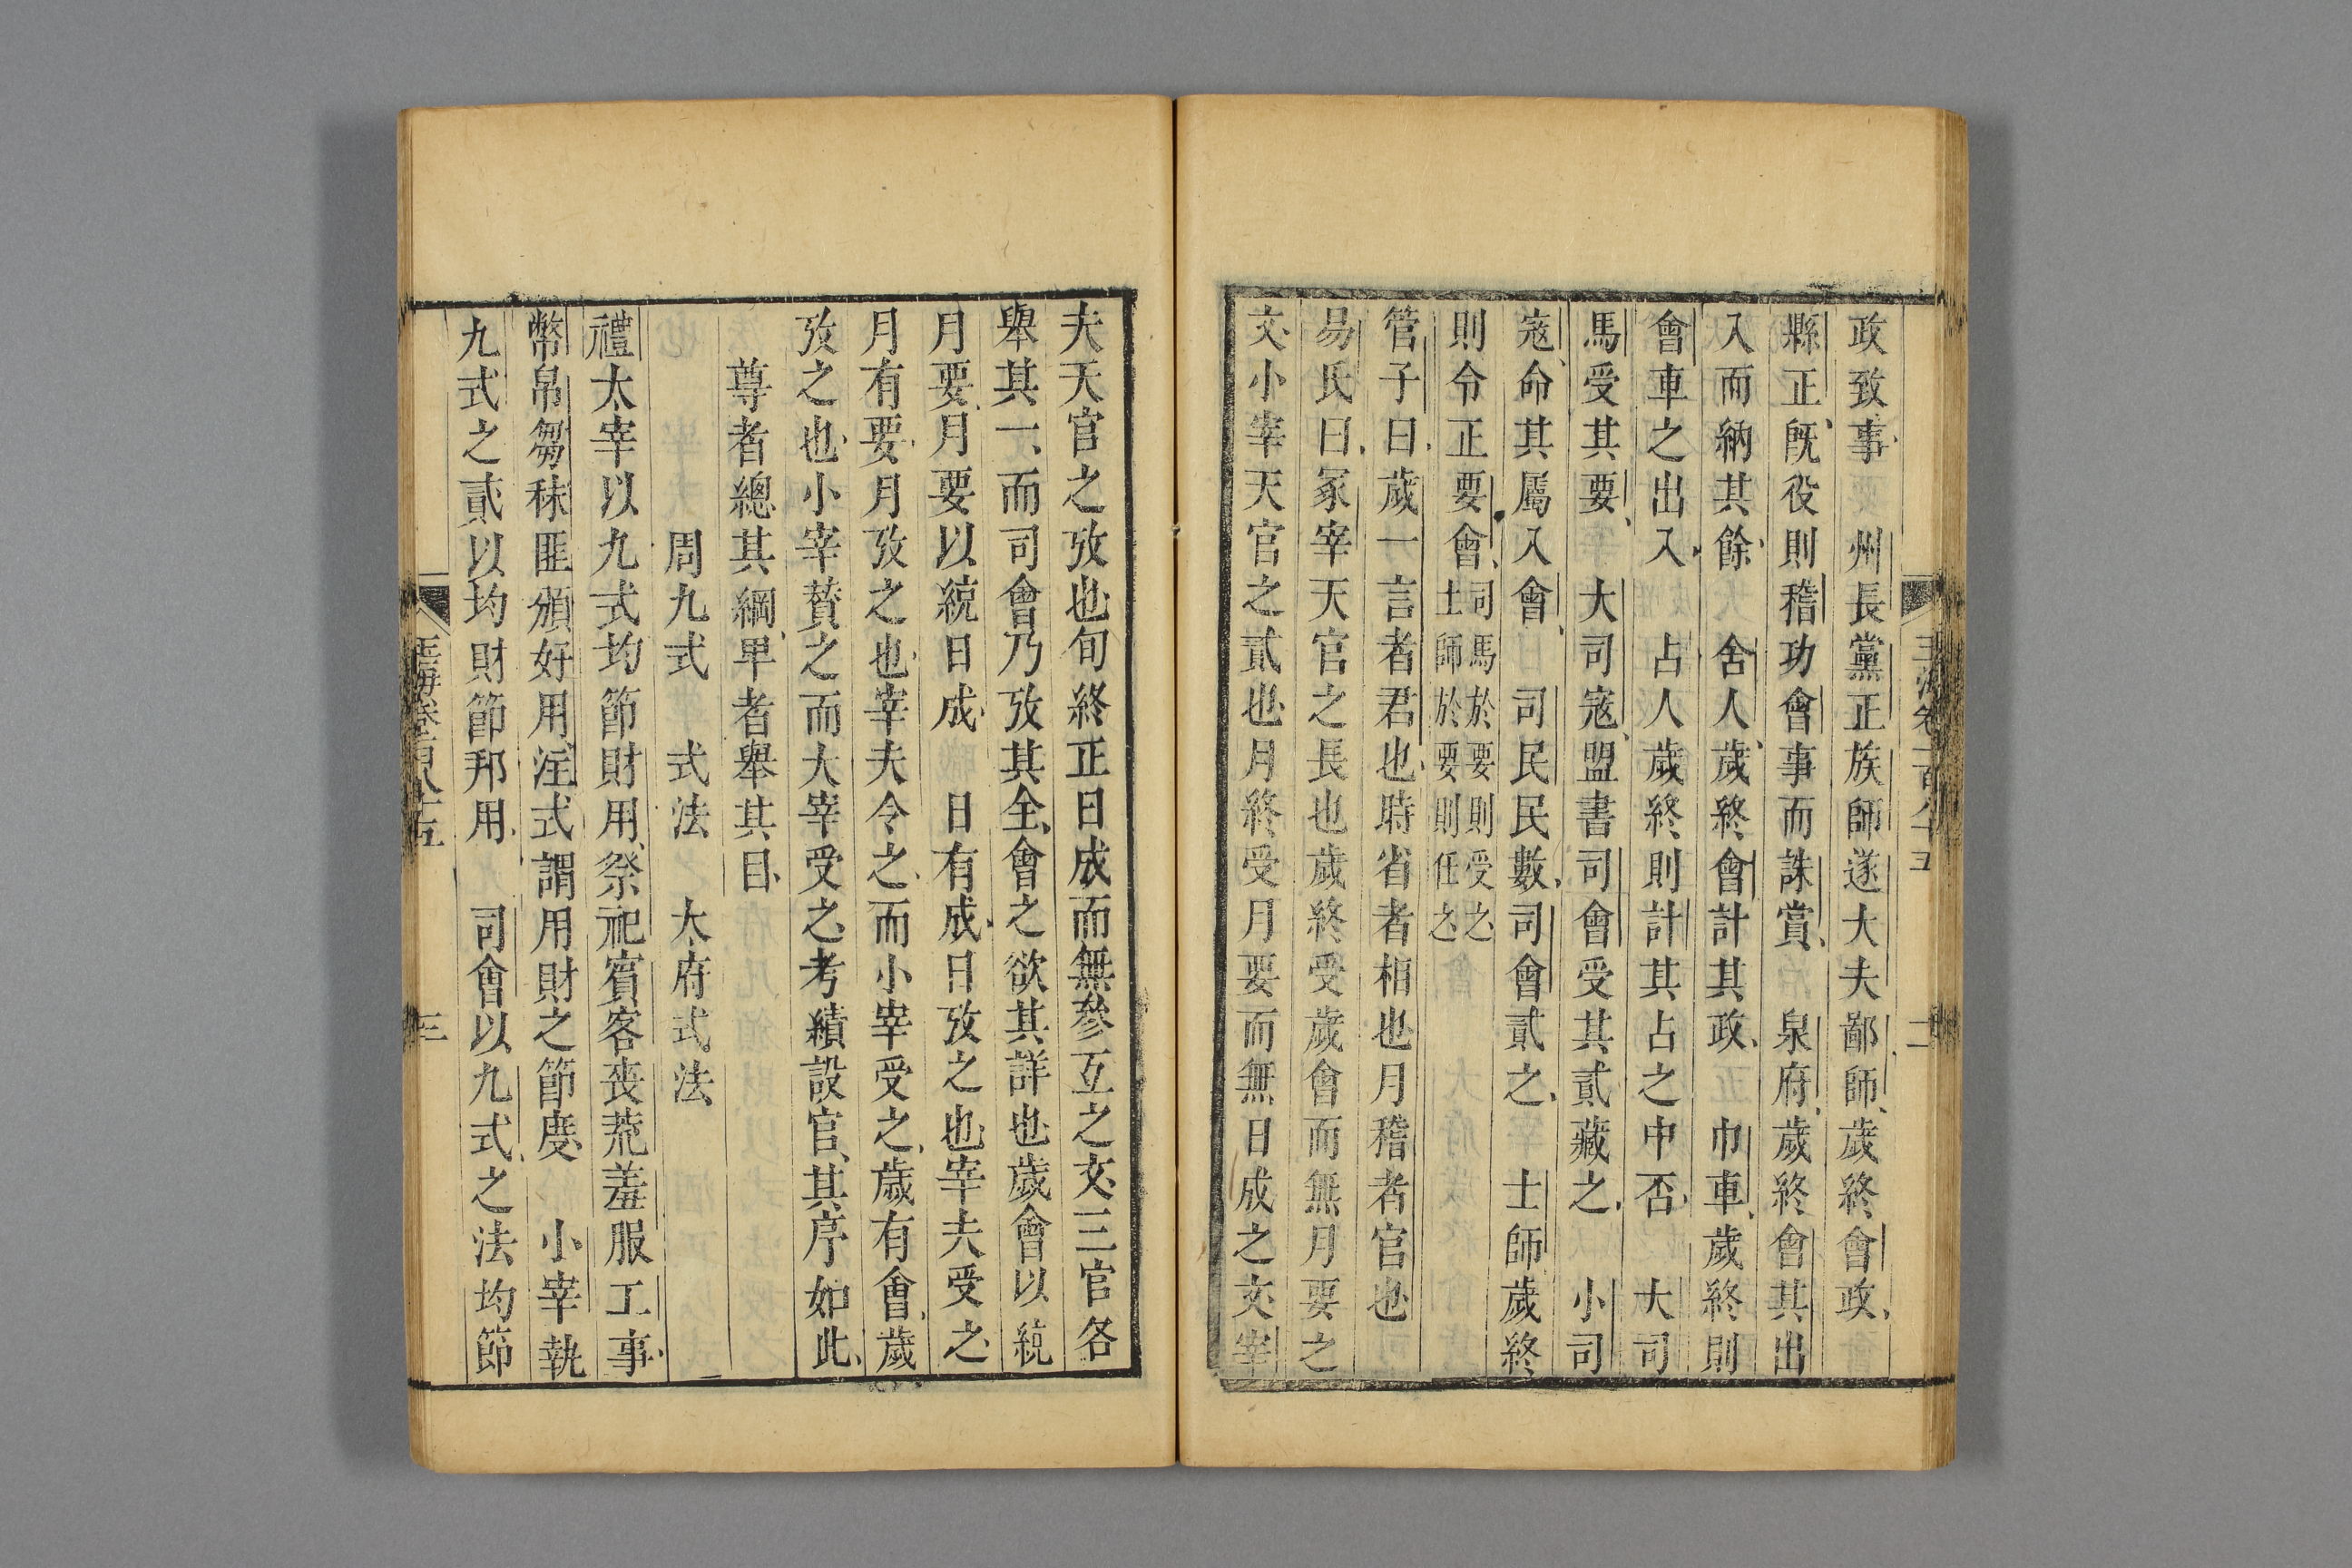 玉海卷一百八十五 二
政致事 州長黨正族師遂大夫鄙師歲終會政
縣正旣役則稽功會事而誅賞 泉府歲終會其出
入而納其餘 舍人歲終會計其政 巾車歲終則
會車之出入 占人歲終則計其占之中否 大司
馬受其要 大司寇盟書司會受其貳藏之 小司
寇命其屬入會 司民民數司會貳之 士師歲終
則令正要會司馬於要則受之士師於要則任之
管子曰歲一言者君也時省者相也月稽者官也
易氏曰冢宰天官之長也歲終受歲會而無月要之
文小宰天官之貳也月終受月要而無日成之文宰
夫天官之攷也旬終正日成而無參互之文三官各
舉其一而司會乃攷其全會之欲其詳也歲會以統
月要月要以統日成 日有成日攷之也宰夫受之
月有要月攷之也宰夫令之而小宰受之歲有會歲
攷之也小宰贊之而大宰受之考績設官其序如此
尊者總其綱卑者舉其目
周九式 式法 太府式法
禮太宰以九式均節財用祭祀賓客喪荒羞服工事
幣帛芻秣匪頒好用注式謂用財之節度 小宰執
九式之貳以均財節邦用 司會以九式之法均節
玉海卷一百八十五 三